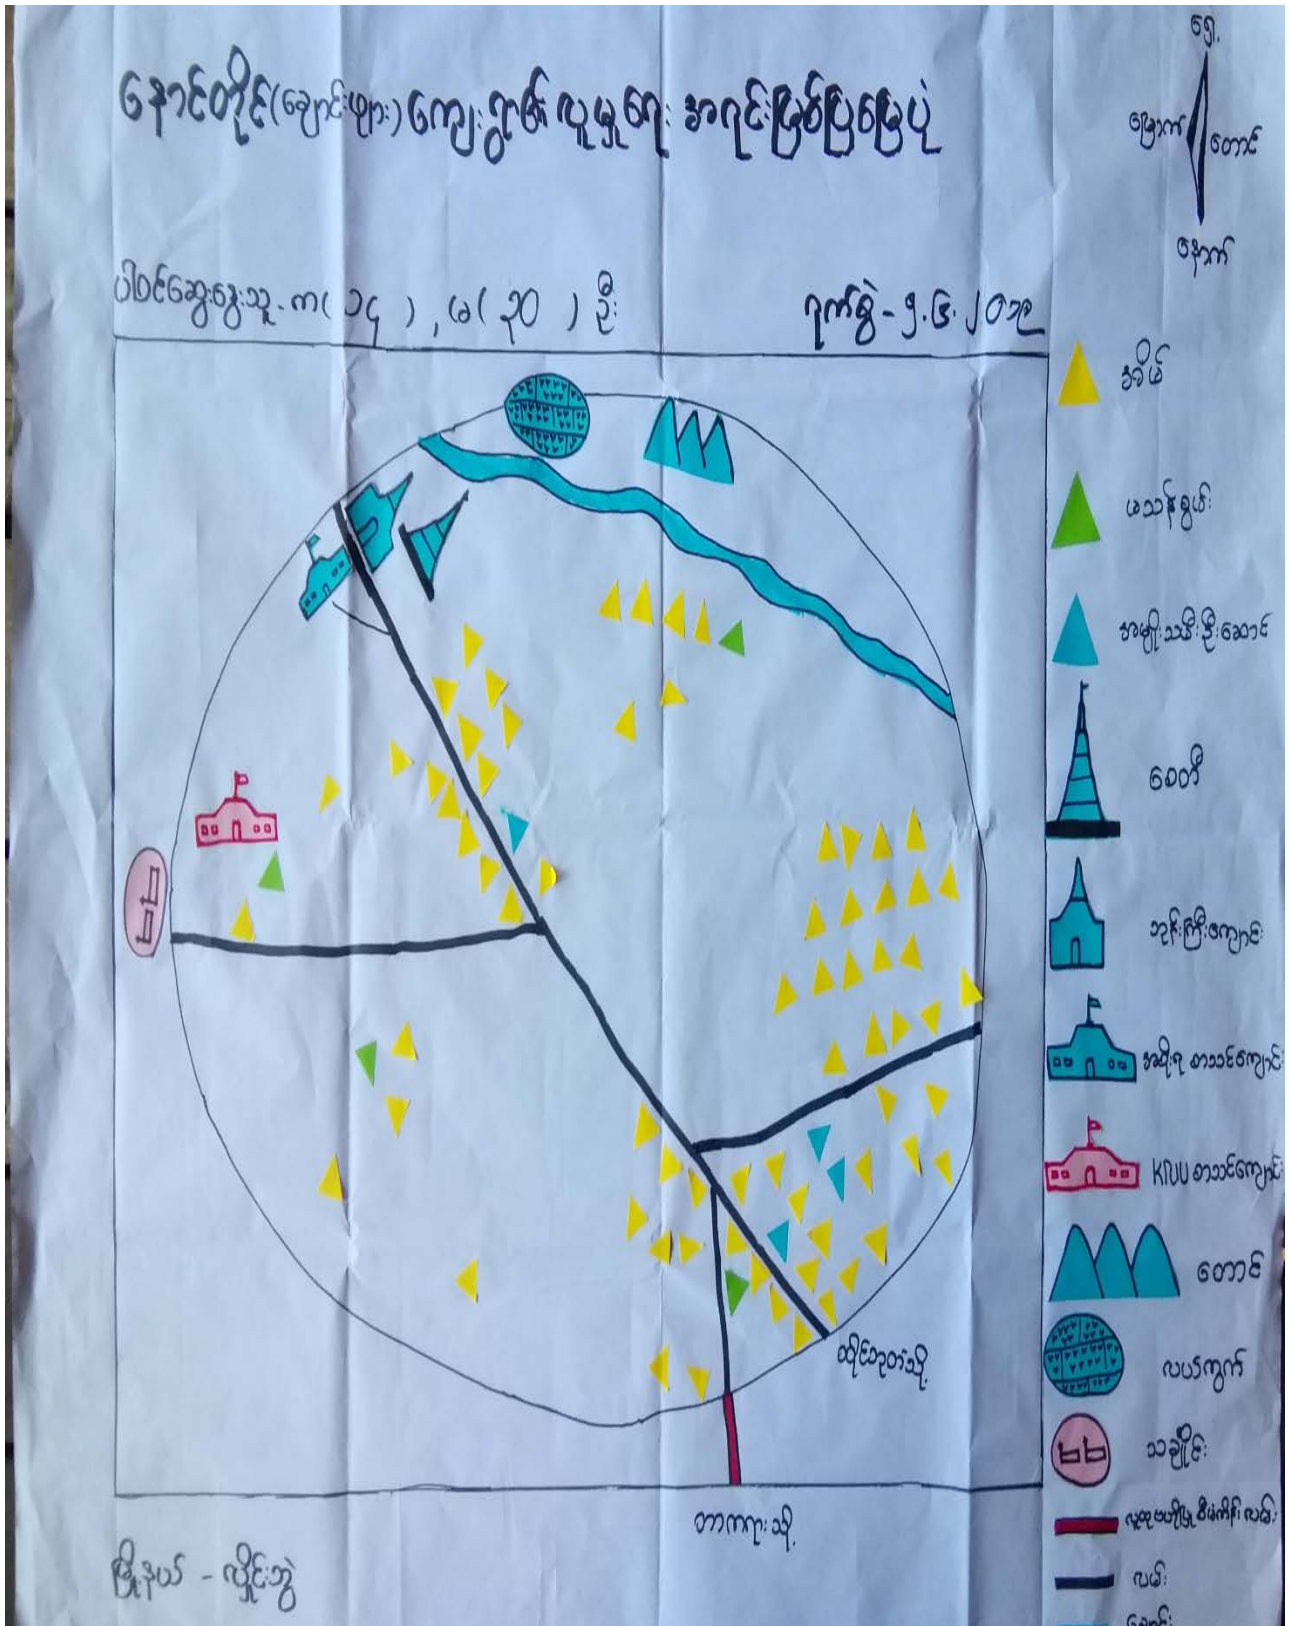 နောင်တိုင်(ချောင်းဖျား)ကျေးရွာ၏ လူမှုရေး အရင်းမြစ်ပြမြေပုံ
ရှေ့
မြောက်
တောင်
နောက်
ပါဝင်ဆွေးနွေးသူ - ကျ( ၁၄ ) , မ ( ၃၀ ) ဦး
ရက်စွဲ - ၅.၆.၂၀၁၉
အိမ်
မသန်စွမ်း
အမျိုးသမီးဦးဆောင်
စေတီ
ဘုန်းကြီးကျောင်း
အစိုးရ စာသင်ကျောင်း
KNU စာသင်ကျောင်း
တောင်
လယ်ကွက်
သချိုင်း
လူထုဗဟိုပြု စီမံကိန်းလမ်း
လမ်း
ချောင်း
ထိုင်ဘုတ်သို့
တာကရားသို့
မြို့နယ် - လှိုင်းဘွဲ